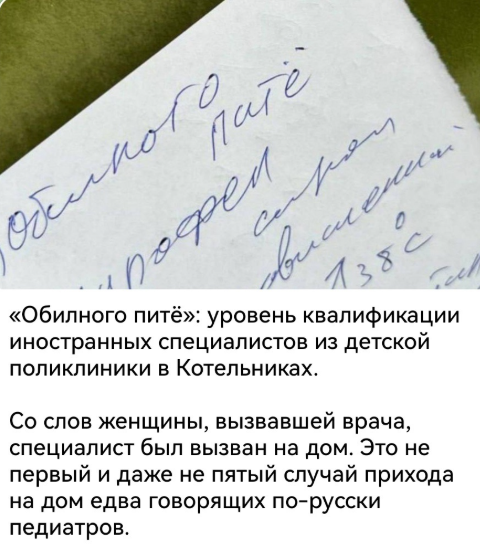 Обилного
питё
сироп
38°C
«Обилного питё»: уровень квалификации
иностранных специалистов из детской
поликлиники в Котельниках.
Со слов женщины, вызвавшей врача,
специалист был вызван на дом. Это не
первый и даже не пятый случай прихода
на дом едва говорящих по-русски
педиатров.